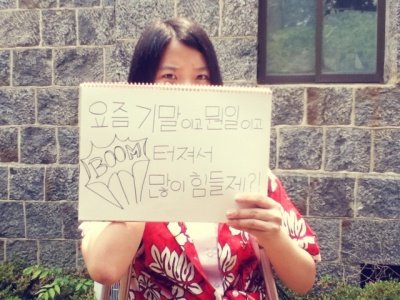 요즘 기말이고 뭔일이고
BOOM 터져서
많이 힘들제?!